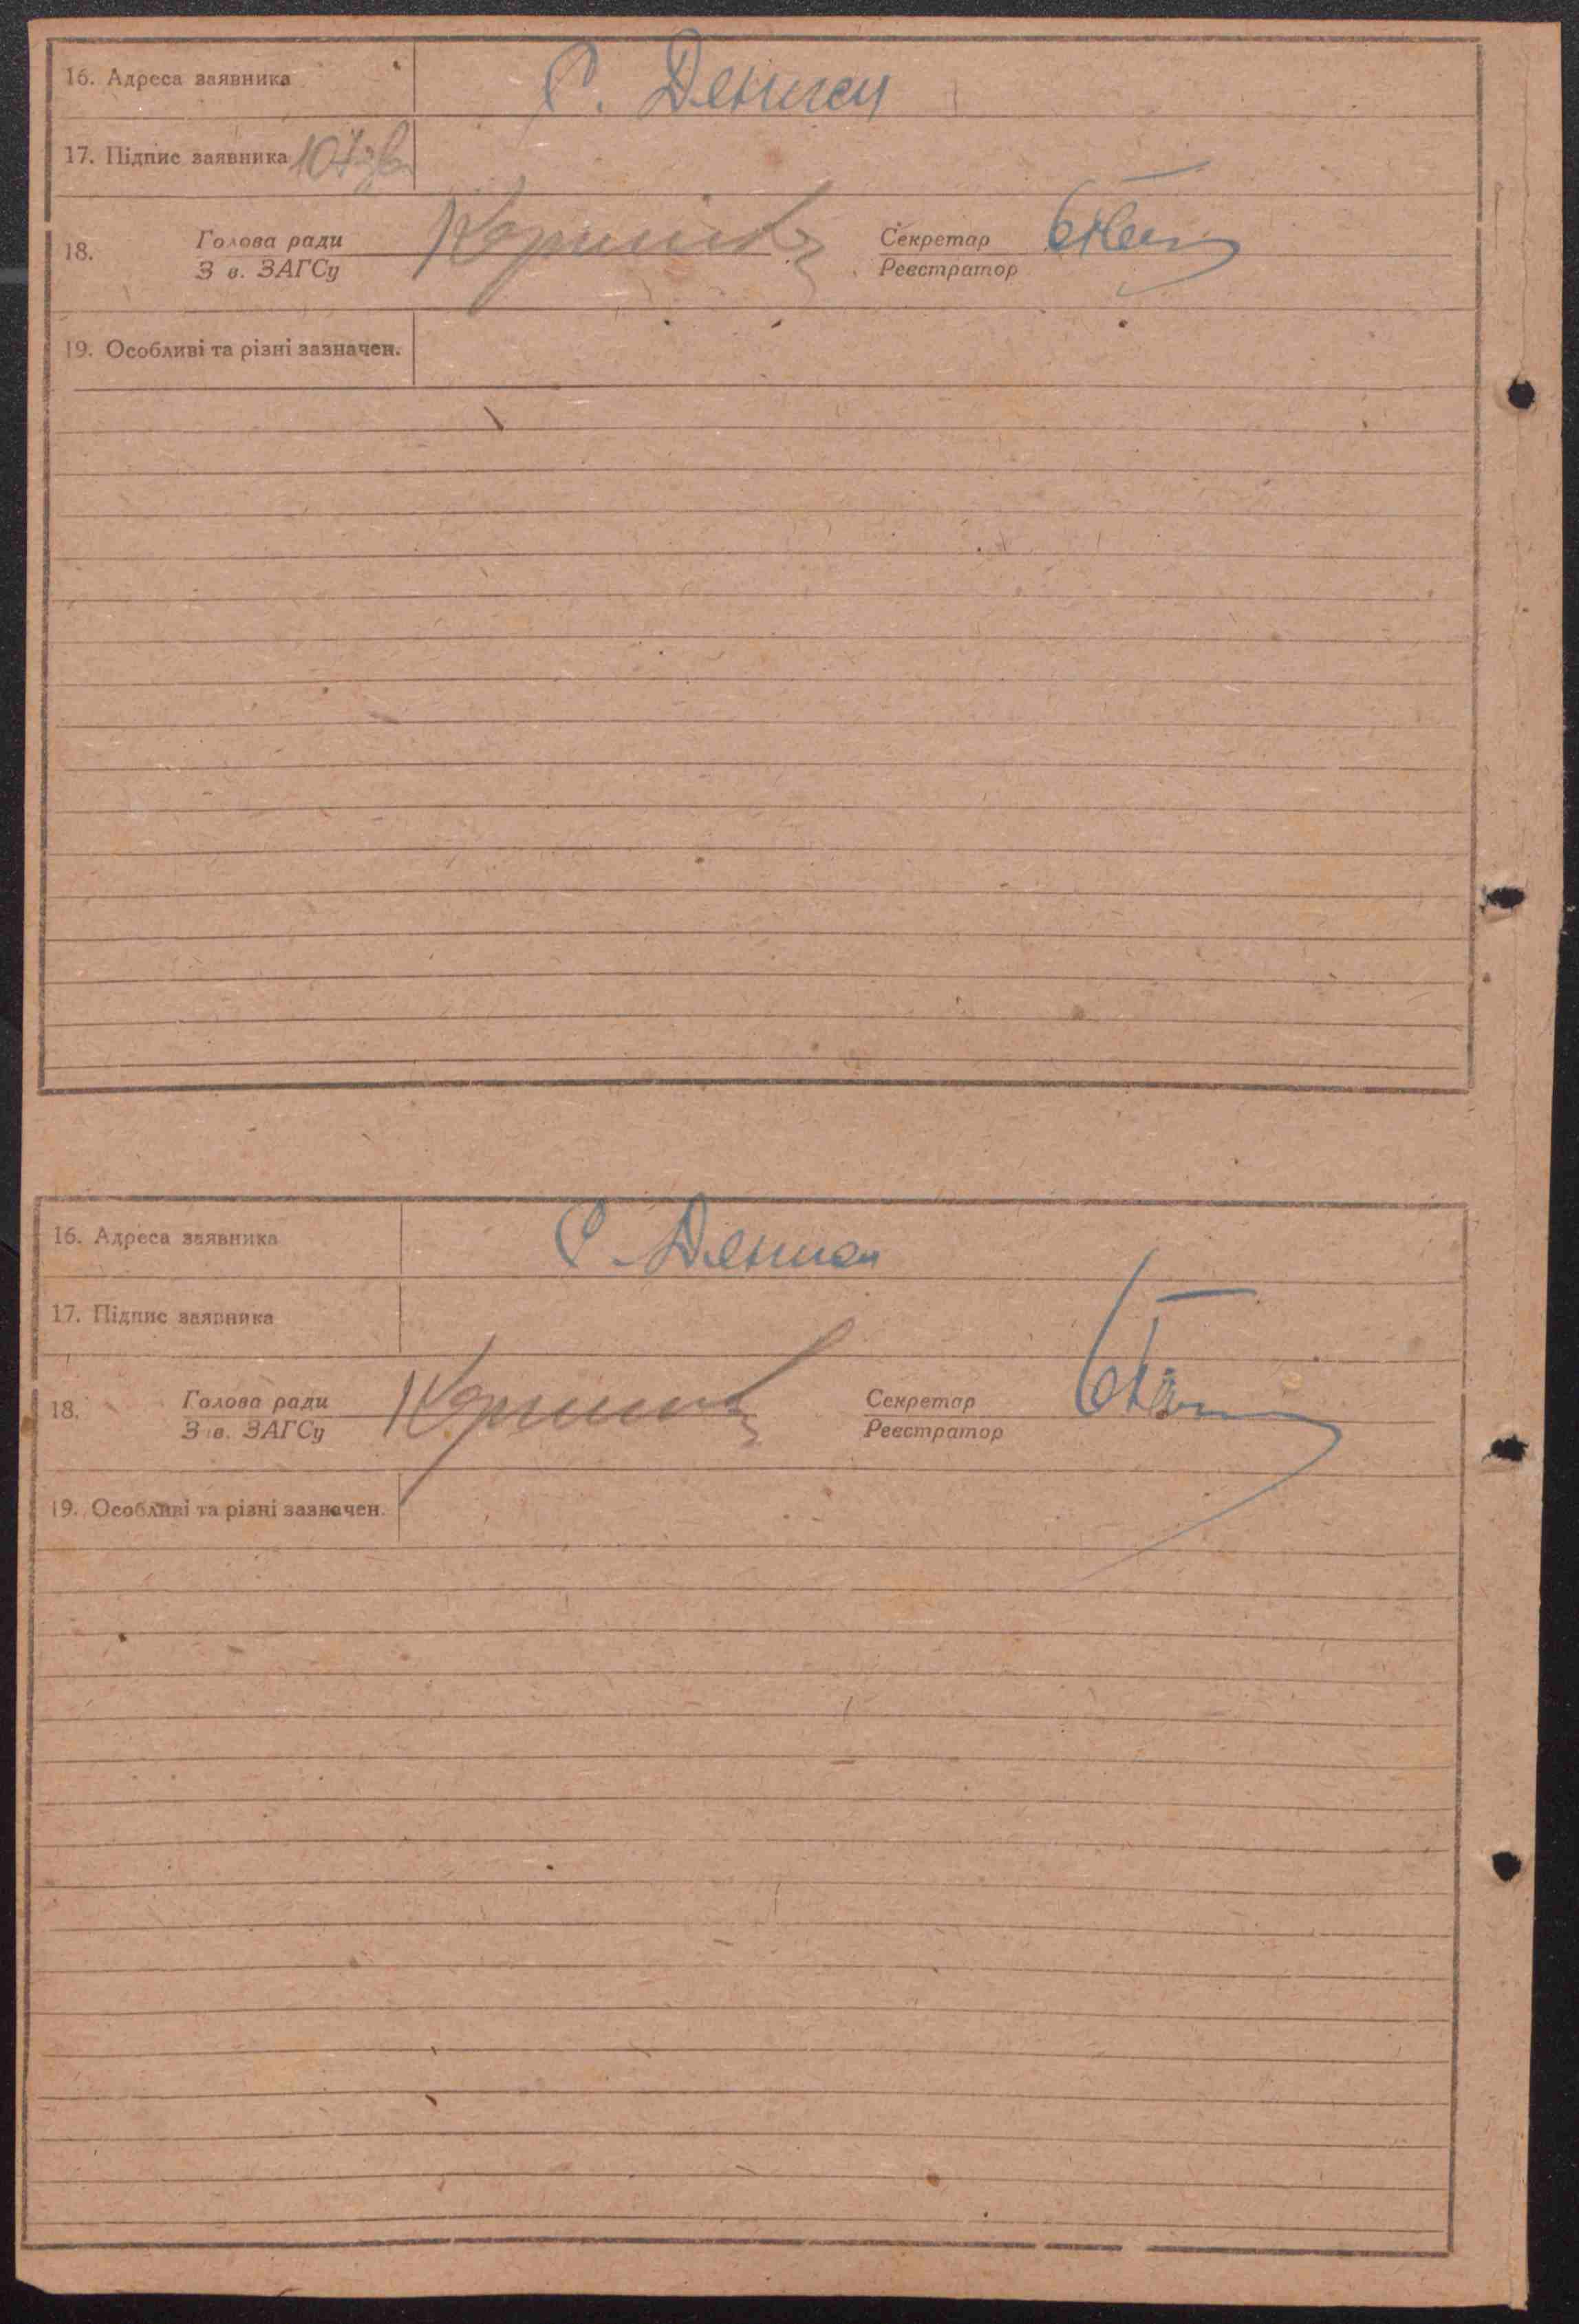 16. Адреса заявника С. Дениси
17. Підпис заявника
18. Голова ради Секретар
З в. ЗАГСу Реєстратор
19. Особливі та різні зазначен.
16. Адреса заявника С.
17. Підпис заявника
18. Голова ради Секретар
З в. ЗАГСу Реєстратор
19. Особливі та різні зазначен.